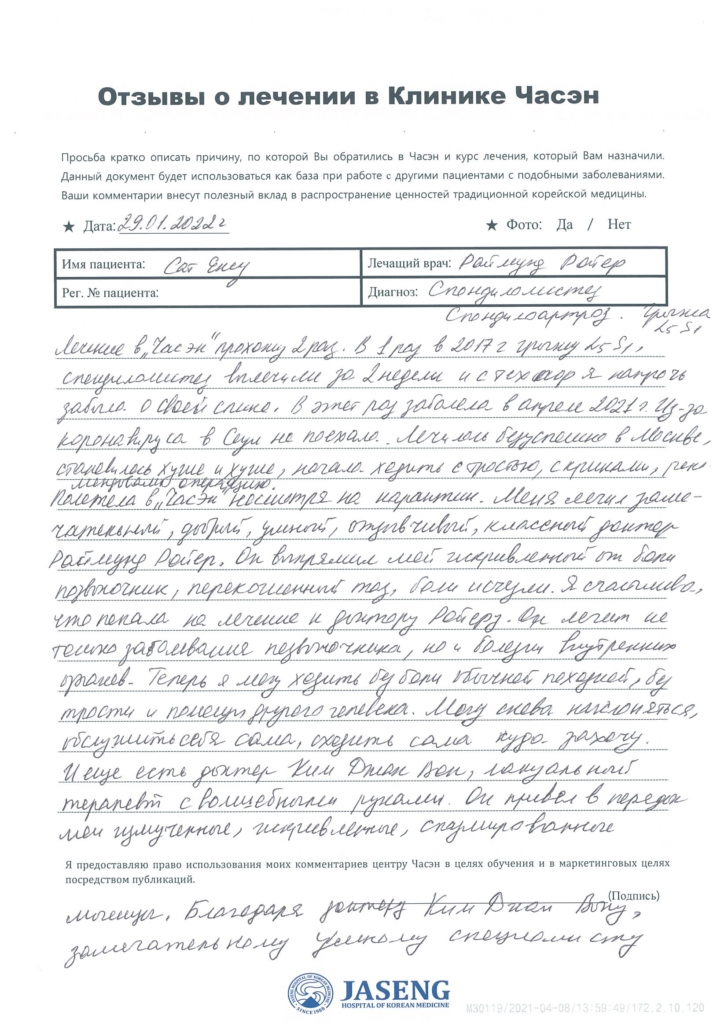 Отзывы о лечении в Клинике Часэн
Просьба кратко описать причину, по которой Вы обратились в Часэн и курс лечения, который Вам назначили.
Данный документ будет использоваться как база при работе с другими пациентами с подобными заболеваниями.
Ваши комментарии внесут полезный вклад в распространение ценностей традиционной корейской медицины.
★ Дата: 29.01.2022 г ★ Фото: Да / Нет
Имя пациента: Сат Енсу Лечащий врач: Раймунд Ройер
Рег. № пациента: Диагноз: Спондилолистез
Спондилоартроз. Грыжа
L5 S1
Лечение в „Часэн" прохожу 2 раз. В 1 раз в 2017 г грыжу L5 S1,
спондилолистез вылечили за 2 недели и с тех пор я напрочь
забыла о своей спине. В этот раз заболела в апреле 2021 г. Из-за
коронавируса в Сеул не поехала. Лечилась безуспешно в Москве,
становилось хуже и хуже, начала ходить с тростью, с криками, реко
мендовали операцию.
Полетела в „Часэн" несмотря на карантин. Меня лечил заме-
чательный, добрый, умный, отзывчивый, классный доктор
Раймунд Ройер. Он выпрямил мой искривленный от боли
позвоночник, перекошенный таз, боли исчезли. Я счастлива,
что попала на лечение к доктору Ройеру. Он лечит не
только заболевание позвоночника, но и болезни внутренних
органов. Теперь я могу ходить без боли обычной походкой, без
трости и помощи другого человека. Могу снова наклоняться,
обслужить себя сама, сходить сама куда захочу.
И еще есть доктор Ким Джон Вон, мануальный
терапевт с волшебными руками. Он привел в порядок
мои измученные, искривленные, спазмированные
Я предоставляю право использования моих комментариев центру Часэн в целях обучения и в маркетинговых целях
посредством публикаций.
(Подпись)
мышцы. Благодаря доктору Ким Джон Вону,
замечательному умному специалисту
JASENG
HOSPITAL OF KOREAN MEDICINE
SINCE 1988
M30119/2021-04-08/13:59:49/172.2.10.120